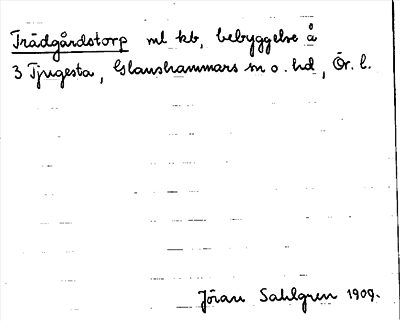 Trädgårdstorp ml kb, bebyggelse å
3 Tjugesta, Glanshammars sn o. hd, Ör. l.
Jöran Sahlgren 1909.